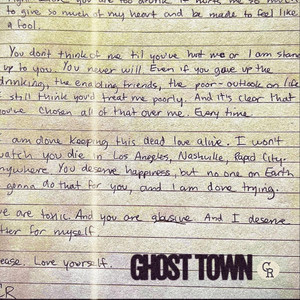 you are too drunk. me so much
to give so much of my heart and be made to feel like
a fool.
You dont think of me til you've hurt me or I am stan
up to you. You never will Even if you gave up the
drinking, the enabling friends, the poor-outlook on life
still think you'd treat me poorly. And it's clear that
you've chosen all of that over me. Every time.
am done keeping this dead love alive. I won't
watch you die in Los Angeles, Nashville, Rapid City.
nywhere. You deserve happiness, but no one on Earth
gonna do that for you, and I am done trying.
we are toxic And you are abusive And I deserve
tter for myself
ease. Love yourself.
GHOST TOWN CR
CR